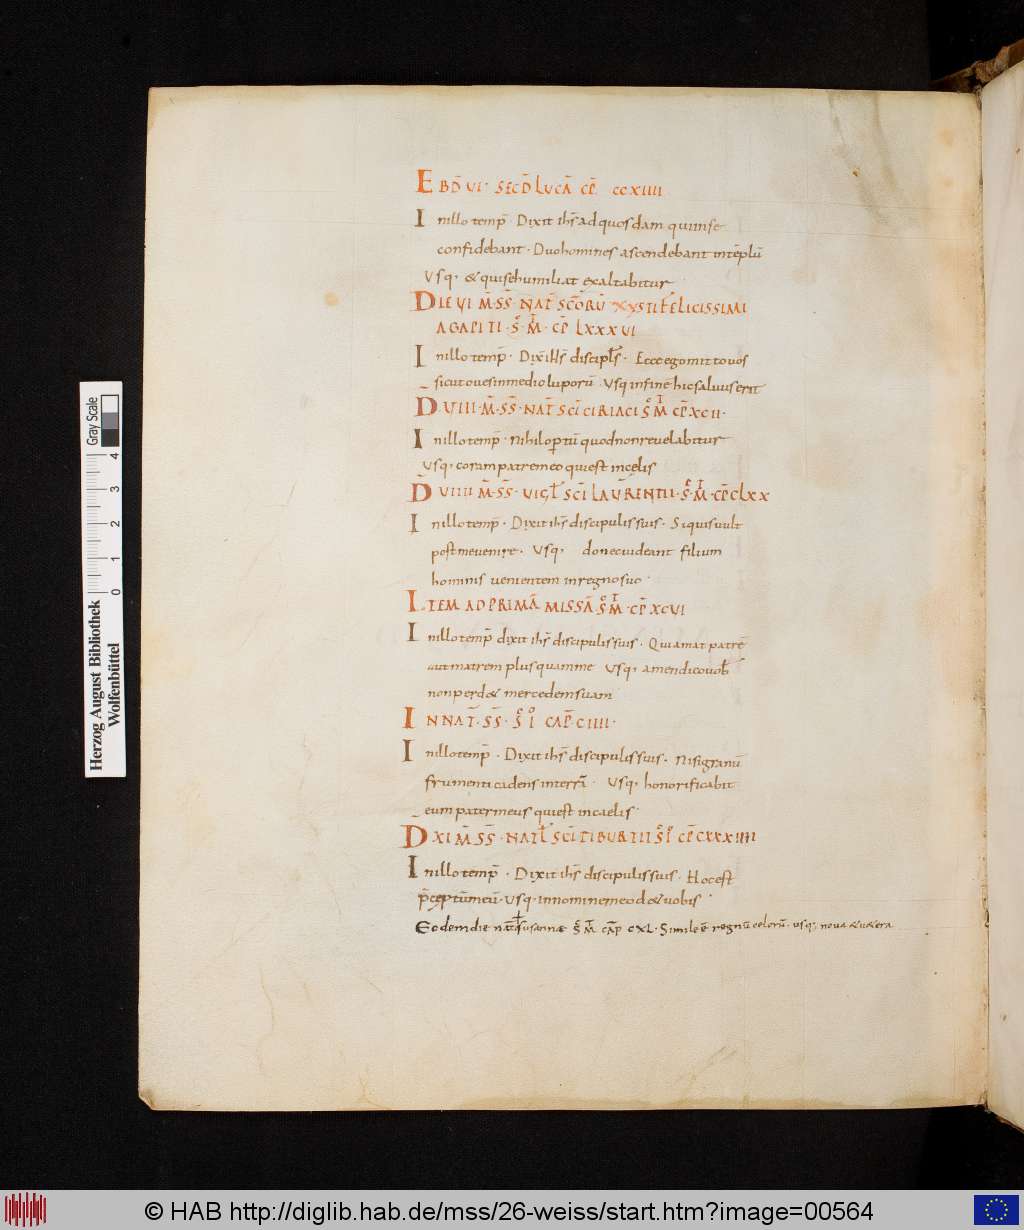 EBD̄ VI· SECD̄ LUCĀ CP̄ CCXIIII
Inillo temp̄· Dixit ih̄s ad quosdam qui inse
confidebant· Duo homines ascendebant intēplū
Usq; & quisehumiliat exaltabitur
DIE VI M̄· S̄S̄· NAT̄ SC̄ORŪ XYSTI FELICISSIMI
AGAPITI· S̄· M̄· CP̄ LXXXVI
Inillo temp̄· Dix̄ ih̄s discipłs· Ecce ego mitto vos
sicut oves inmedio luporū· Usq; infinē hic salvus erit
D̄· VIII· M̄· S̄S̄· NAT̄ SC̄I CIRIACI S̄ M̄ CP̄ XCII·
Inillo temp̄· Nihil optū quod non revelabitur
Usq; coram patre meo quiest in celis
D̄ VIIII M̄· S̄S̄· VIGł SC̄I LAVRENTII· S̄· M̄· CP̄ CLXX
Inillo temp̄· Dixit ih̄s discipulis suis· Siquis vult
post me venire· Usq; donec videant filium
hominis venientem inregno suo·
ITEM AD PRIMĀ MISSĀ S̄ M̄· CP̄ XCVI
Inillo temp̄ dixit ih̄s discipulis suis· Qui amat patrē
aut matrem plus quam me Usq; amen dico vob̄
non perd& mercedem suam
IN NAT̄· S̄S̄· S̄ I CAP̄· CIIII·
Inillo temp̄· Dixit ih̄s discipulis suis· Nisi granū
frumenti cadens interrā· Usq; honorificabit
eum pater meus quiest in caelis·
D̄ XI M̄ S̄S̄· NATł SC̄I TIBURTII S̄ I CP̄ CXXXIIII
Inillo temp̄· Dixit ih̄s discipulis suis· Hoc est
p̄ceptū meū· Usq; innomine meo d& vobis
Eodem die nat̄ susannae S̄ M̄ CAP̄ CXL· Simile ē regnū celorū· usq; nova & vetera
Herzog August Bibliothek
Wolfenbüttel
0 1 2 3 4 Gray Scale
© HAB http://diglib.hab.de/mss/26-weiss/start.htm?image=00564